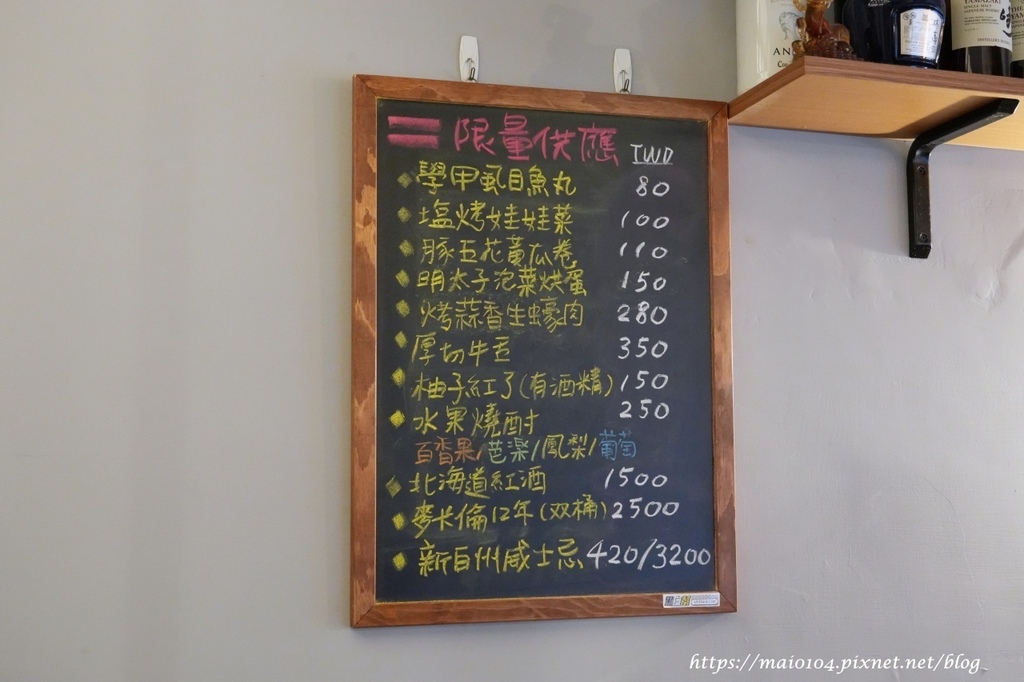 限量供應 TWD
學甲虱目魚丸 80
塩烤娃娃菜 100
豚五花黃瓜卷 110
明太子泡菜烘蛋 150
烤蒜香生蠔肉 280
厚切牛舌 350
柚子紅了(有酒精) 150
水果燒酎 250
百香果/芭樂/鳳梨/葡萄
北海道紅酒 1500
麥卡倫12年(双桶) 2500
新白州威士忌 420/3200
YAMAZAKI
https://maio104.pixnet.net/blog